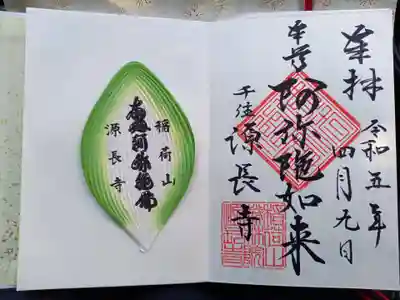 奉拝
令和五年
四月九日
本尊
阿弥陀如来
千住
源長寺
稲荷山
南無阿弥陀佛
源長寺